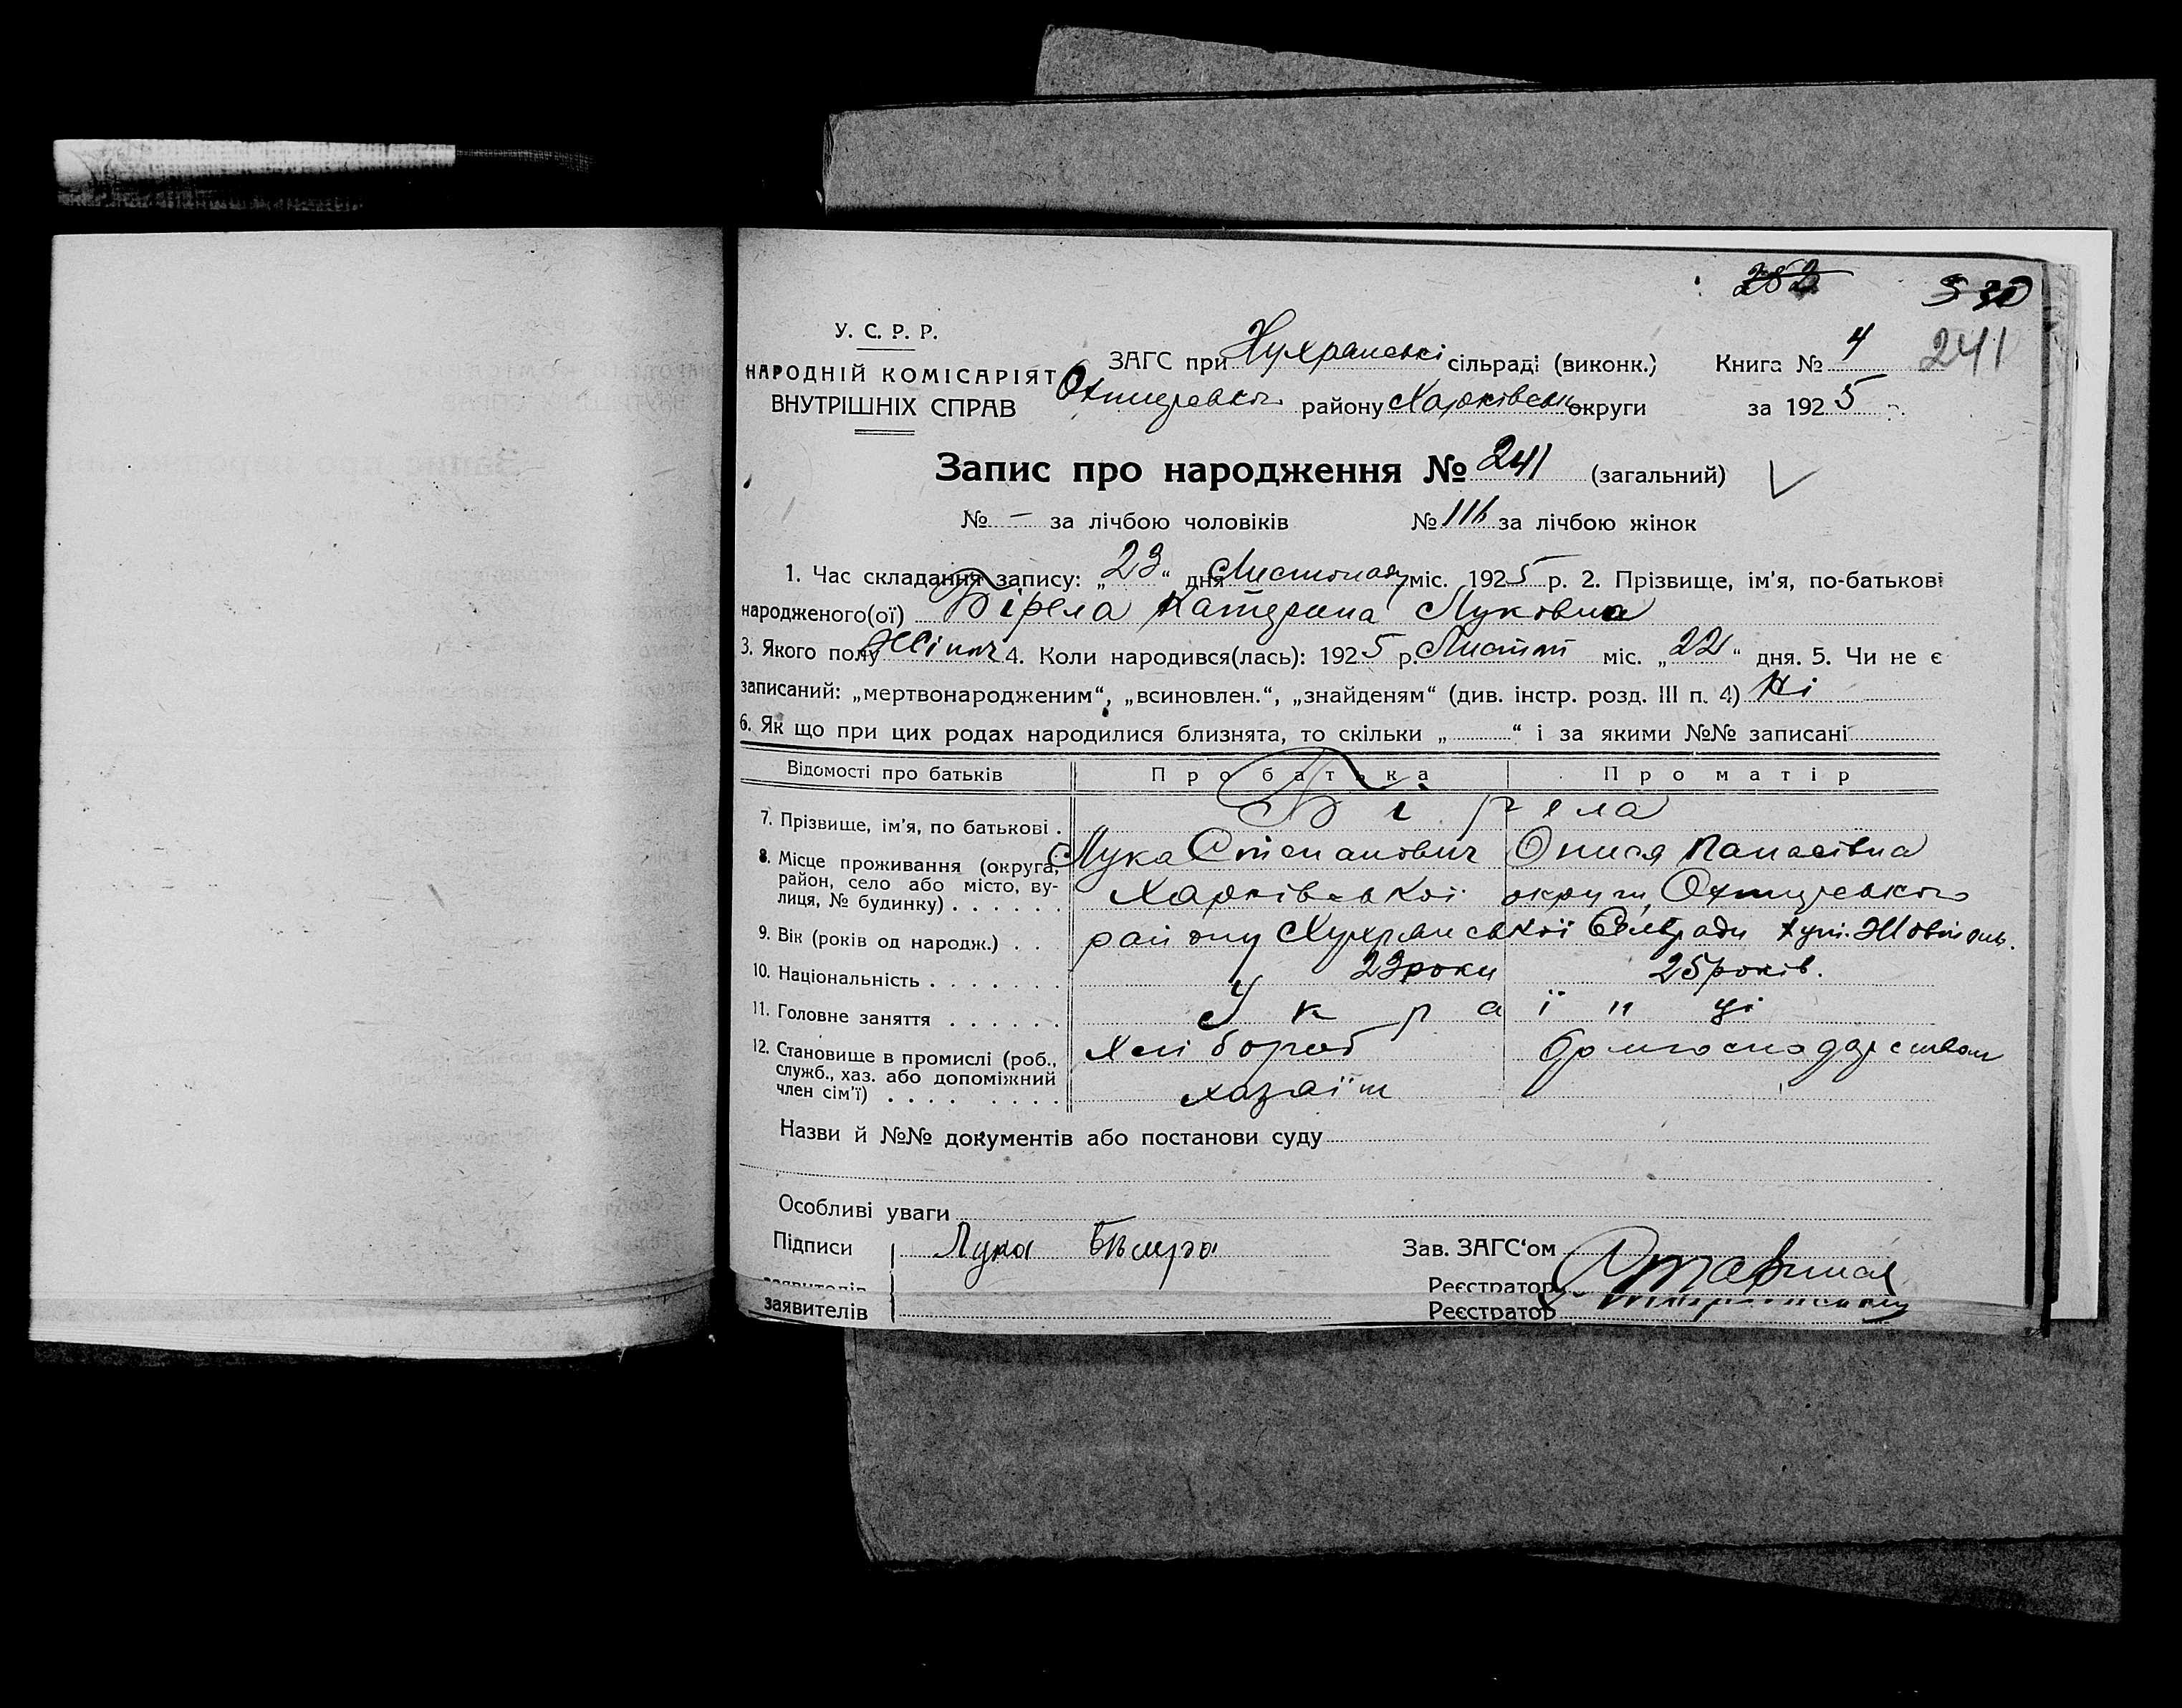 282 530
У. С. Р. Р.
ЗАГС при Хухранські сільраді (виконк.) Книга № 4 241
НАРОДНІЙ КОМІСАРІЯТ
ВНУТРІШНІХ СПРАВ Охтирського району Харківськ округи за 1925 р.
Запис про народження № 241 (загальний)
№ — за лічбою чоловіків № 116 за лічбою жінок
1. Час складання запису: „23“ дня Листопаду міс. 1925 р. 2. Прізвище, ім’я, по-батькові
народженого(ої) Бірела Катерина Луковна
3. Якого полу Жіноч 4. Коли народився(лась): 1925 р. Листоп міс. „22“ дня. 5. Чи не є
записаний: „мертвонародженим“, „всиновлен.“, „знайденям“ (див. інстр. розд. III п. 4) Ні
6. Як що при цих родах народилися близнята, то скільки „ “ і за якими №№ записані
Відомості про батьків Про батька Про матір
7. Прізвище, ім’я, по батькові . Бірела
Лука Степанович Онися Панасівна
8. Місце проживання (округа, район, село або місто, вулиця, № будинку) . . . . . . Харківської округи, Охтирського
району Хухранської Сільради хут. Жовтень.
9. Вік (років од народж.) . . 23 роки 25 років.
10. Національність . . . . . . . Українці
11. Головне заняття . . . . . . Хлібороб домгосподарством
12. Становище в промислі (роб., служб., хаз. або допоміжний член сім’ї) . . . . . . . . хазаїн
Назви й №№ документів або постанови суду
Особливі уваги
Підписи Лука Зав. ЗАГС‘ом
Реєстратор
заявителів Реєстратор